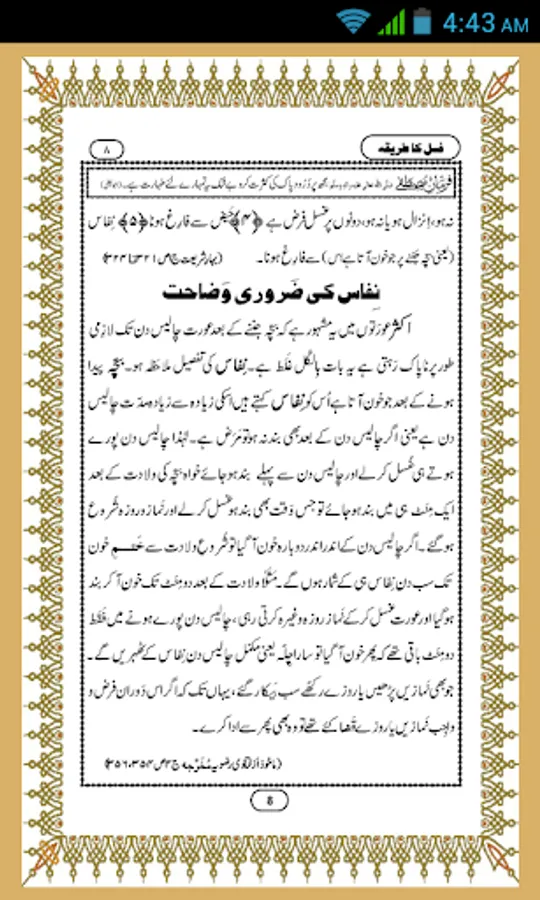 4:43 AM
غسل کا طریقہ
۸
فرمانِ مصطفٰے صلی اللہ تعالیٰ علیہ واٰلہ وسلم: مجھ پر دُرُود پاک کی کثرت کرو بے شک یہ تمہارے لئے طہارت ہے۔
نہ ہو، اِنزال ہو یا نہ ہو، دونوں پر غسل فرض ہے ﴿۴﴾ حیض سے فارِغ ہونا ﴿۵﴾ نِفاس
(یعنی بچّہ جننے پر جو خون آتا ہے اس) سے فارِغ ہونا۔ (بہارِ شریعت ج۱ص۳۲۱تا۳۲۴)
نِفاس کی ضَروری وَضاحت
اکثر عورَتوں میں یہ مشہور ہے کہ بچّہ جننے کے بعد عورت چالیس دن تک لازِمی
طور پر ناپاک رَہتی ہے یہ بات بالکل غَلَط ہے۔ نِفاس کی تفصیل مُلاحَظہ ہو۔ بچّہ پیدا
ہونے کے بعد جو خون آتا ہے اُس کو نِفاس کہتے ہیں اسکی زیادہ سے زیادہ مدّت چالیس
دن ہے یعنی اگر چالیس دن کے بعد بھی بند نہ ہو تو مَرَض ہے۔ لہٰذا چالیس دن پورے
ہوتے ہی غُسل کر لے اور چالیس دن سے پہلے بند ہو جائے خواہ بچّہ کی ولادت کے بعد
ایک مِنَٹ ہی میں بند ہو جائے تو جس وَقت بھی بند ہو غسل کر لے اور نَماز و روزہ شُروع
ہو گئے۔ اگر چالیس دن کے اندر اندر دوبارہ خون آ گیا تو شُروعِ ولادت سے ختمِ خون
تک سب دن نِفاس ہی کے شمار ہوں گے۔ مَثَلاً ولادت کے بعد دو مِنَٹ تک خون آ کر بند
ہو گیا اور عورت غسل کر کے نَماز روزہ وغیرہ کرتی رہی، چالیس دن پورے ہونے میں فَقَط
دو مِنَٹ باقی تھے کہ پھر خون آ گیا تو سارا چلّہ یعنی مکمّل چالیس دن نِفاس کے ٹھہریں گے۔
جو بھی نَمازیں پڑھیں یا روزے رکھے سب بیکار گئے، یہاں تک کہ اگر اس دَوران فرض و
واجِب نَمازیں یا روزے قَضا کئے تھے تو وہ بھی پھر سے ادا کرے۔
(ماخوذ از فتاوی رضویہ مُخَرَّجہ ج۴ص۳۵۴،۳۵۶)
8